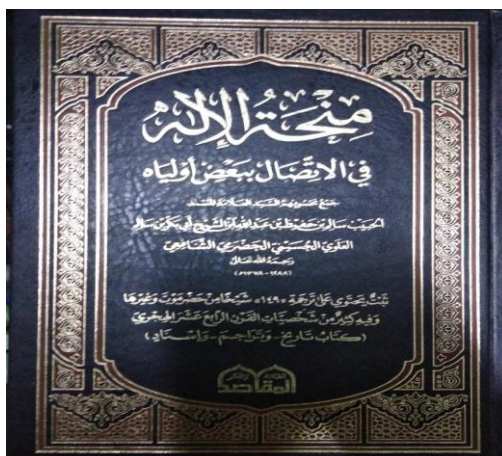 منحة الإله
في الاتصال ببعض أولياه
جمع محرره السيد العلامة المسند
الحبيب سالم بن حفيظ بن عبد الله ابن الشيخ أبي بكر بن سالم
العلوي الحسيني الحضرمي الشافعي
رحمه الله تعالى
(١٢٨٨ - ١٣٧٨هـ)
ثبت يحتوي على ترجمة «١٤٩» شيخا من حضرموت وغيرها
وفيه كثير من شخصيات القرن الرابع عشر الهجري
(كتاب تاريخ - وتراجم - وإسناد)
المقاصد